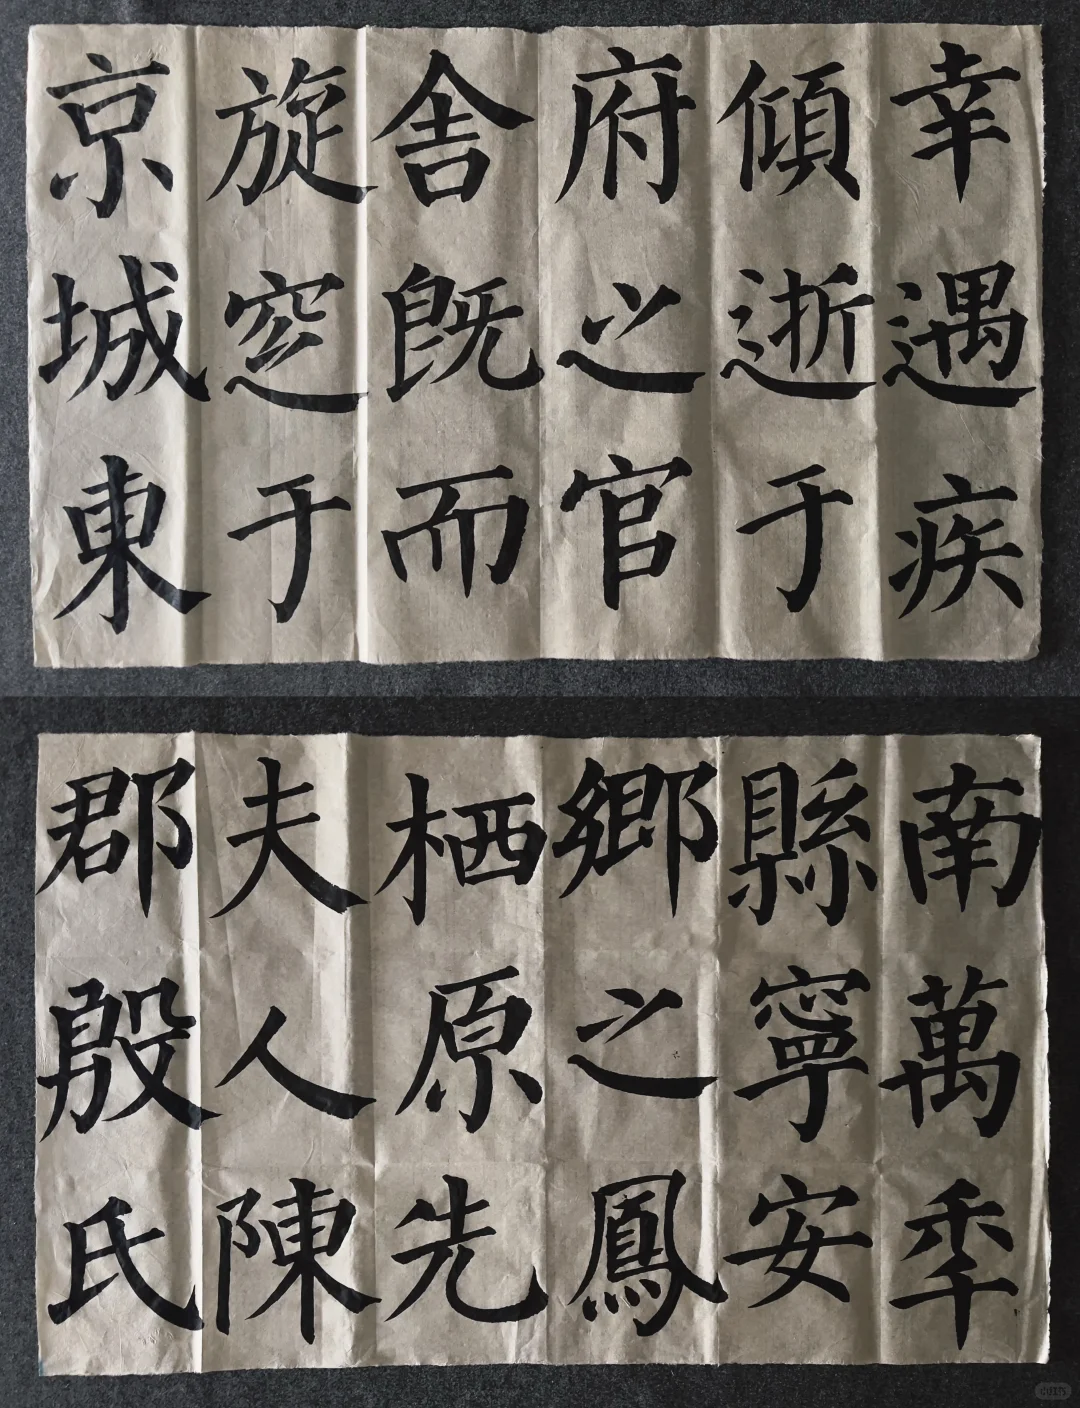 幸遇疾
傾逝于
府之官
舍既而
旋窆于
京城東
南萬秊
縣寧安
鄉之鳳
栖原先
夫人陳
郡殷氏